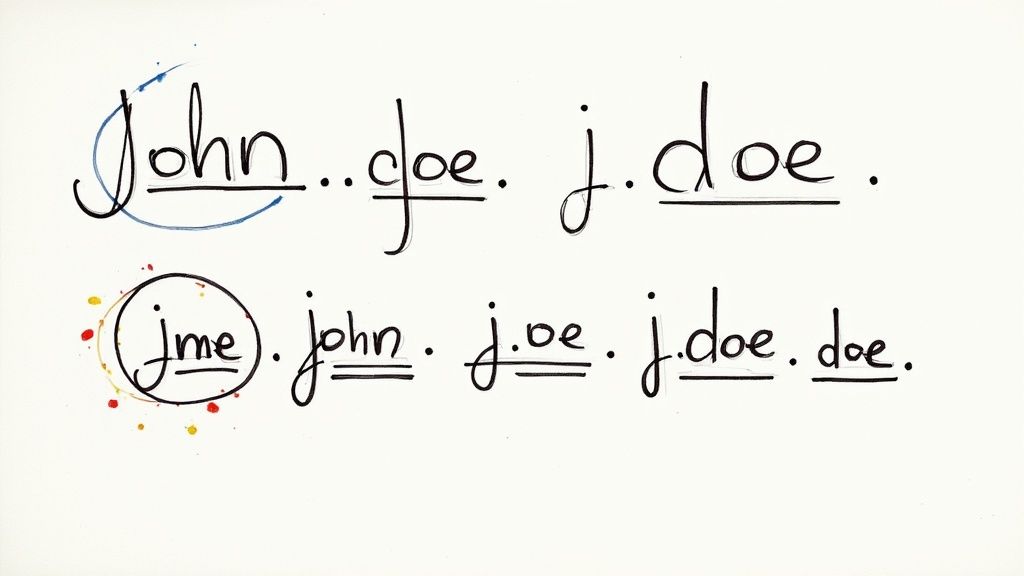 John.. doe. j. doe.
jme. john. j.oe. j.doe. doe.